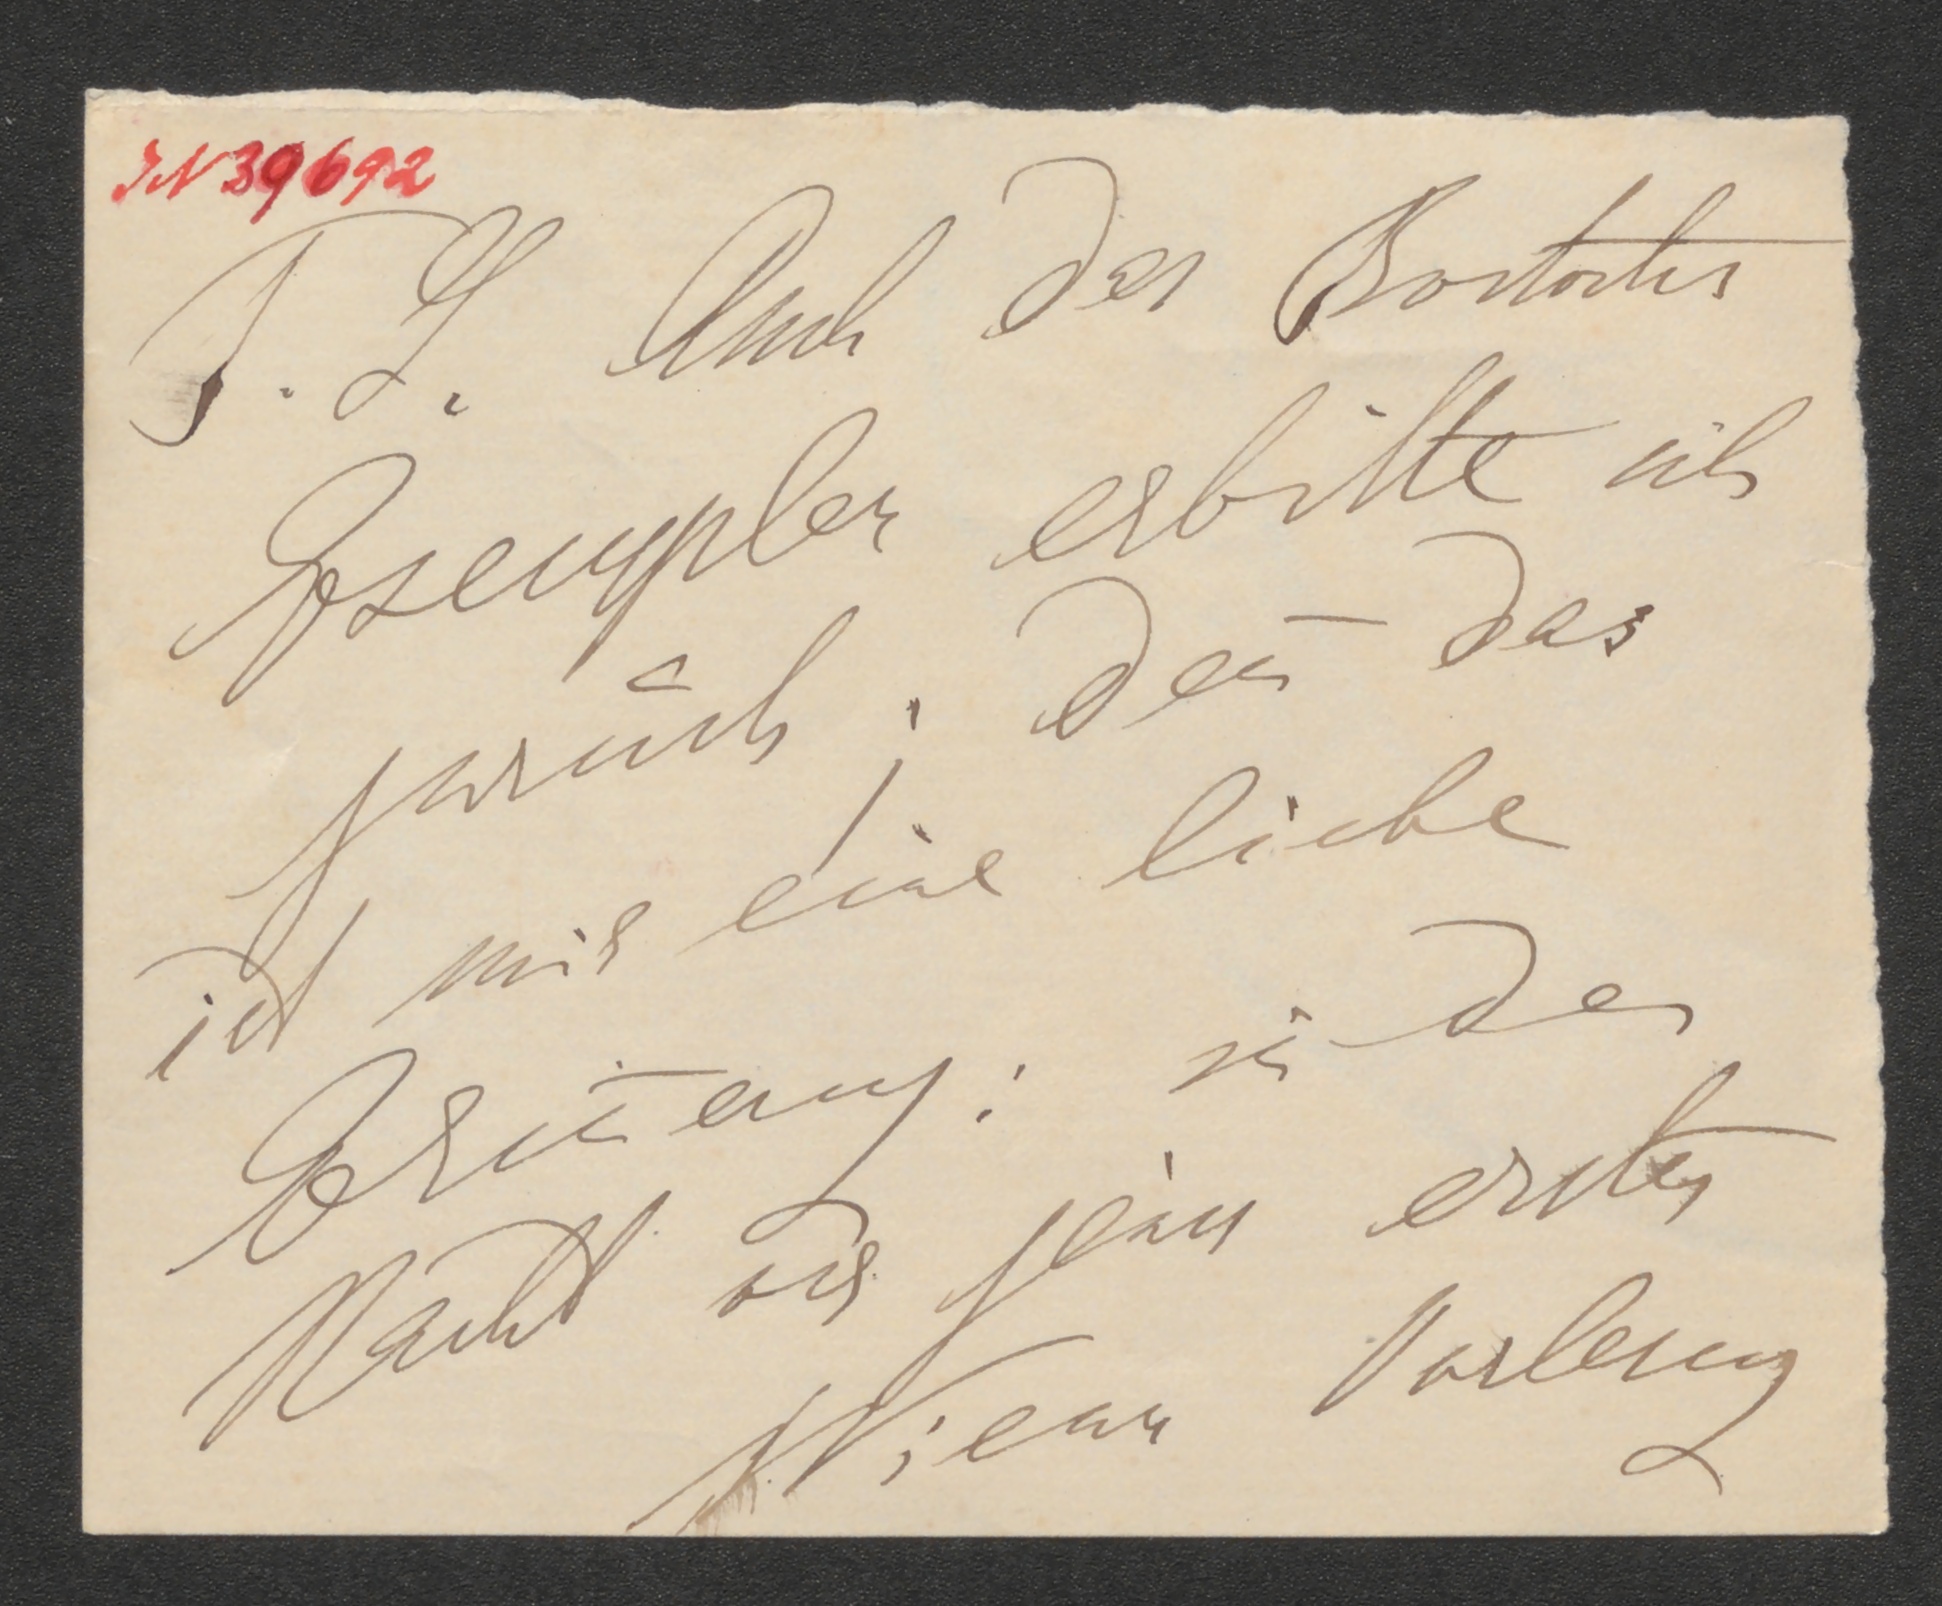 IN 39692
P. S. Auch das
Exemplar erbitte ich
zurück; deñ das
ist mir eine liebe
Eriñerung: in der
Nacht vor seiner ersten
Wiener Vorlesung